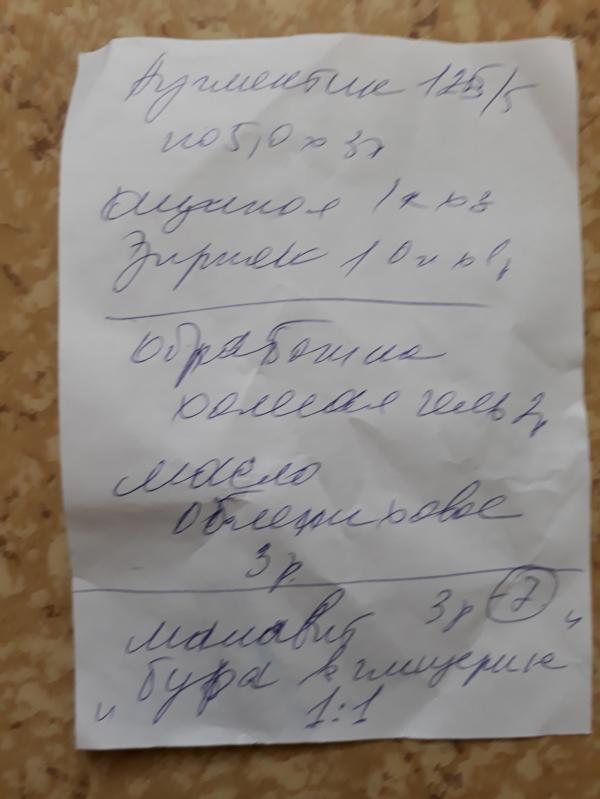 Аугментин 125/5
по 5,0 х 3х
1к х 3
Зиртек 10к х 1р
Обработка
холисал гель 2р
масло
облепиховое
3 р.
малавит 3р (7)
"бура в глицерине"
1:1